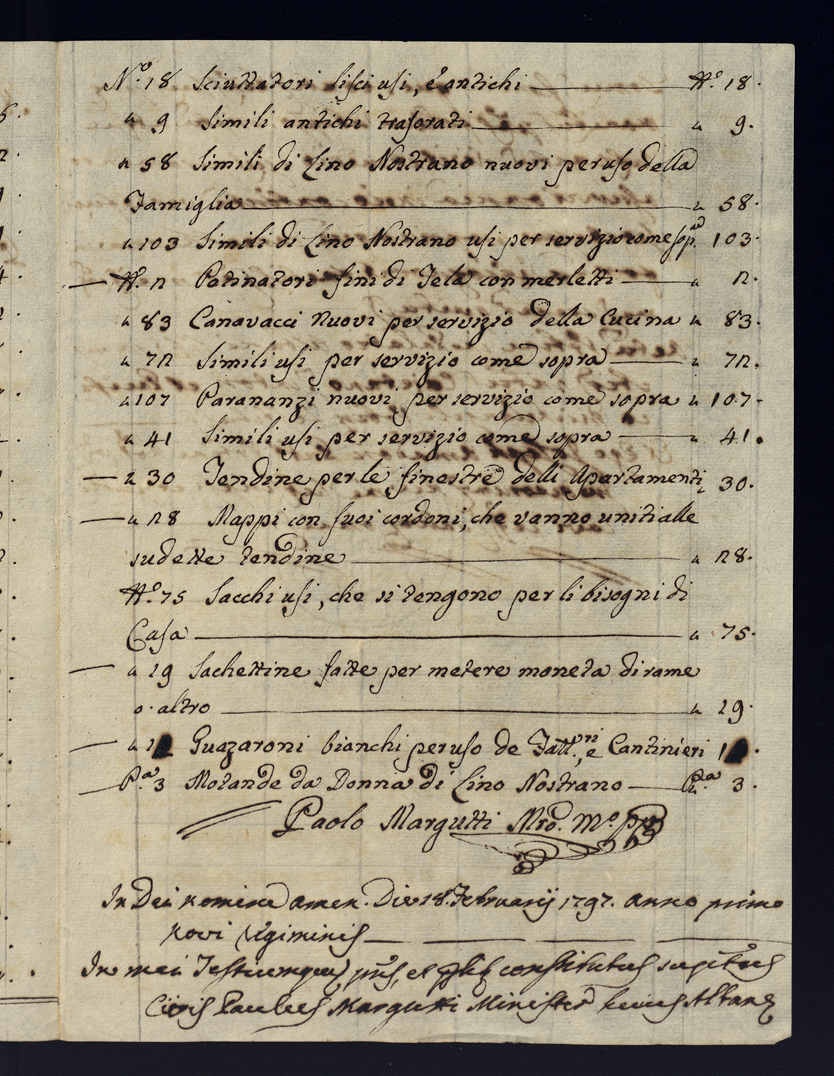 N.º 18 Sciuttatori lisci usi, e antichi — N.º 18.
" 9 Simili antichi traforati — " 9.
" 58 Simili di Lino Nostrano nuovi per uso della
Famiglia — " 58.
" 103 Simili di Lino Nostrano usi per servizio come sop.ª " 103.
N.º 12 Patinatori fini di Tela con merletti — " 12.
" 83 Canavacci Nuovi per servizio della Cucina " 83.
" 72 Simili usi per servizio come sopra — " 72.
" 107 Parananzi nuovi per servizio come sopra " 107.
" 41 Simili usi per servizio come sopra — " 41.
" 30 Tendine per le finestre delli Apartamenti " 30.
" 28 Mappi con suoi cordoni, che vanno uniti alle
sudette tendine — " 28.
N.º 75 Sacchi usi, che si tengono per li bisogni di
Casa — " 75.
" 19 Sachettine fatte per metere moneta di rame
o altro — " 19.
Guazaroni bianchi per uso de Fatt.ri, e Cantinieri
P.ª 3 Motande da Donna di Lino Nostrano — P.ª 3.
Paolo Margutti Mro. Mº. pp
In Dei nomine amen. Die 18. Februarij 1797. anno primo
novi Regiminis —
In mei Testiumque, et constitutus
Civis Paulus Margutti Minister huius Altane